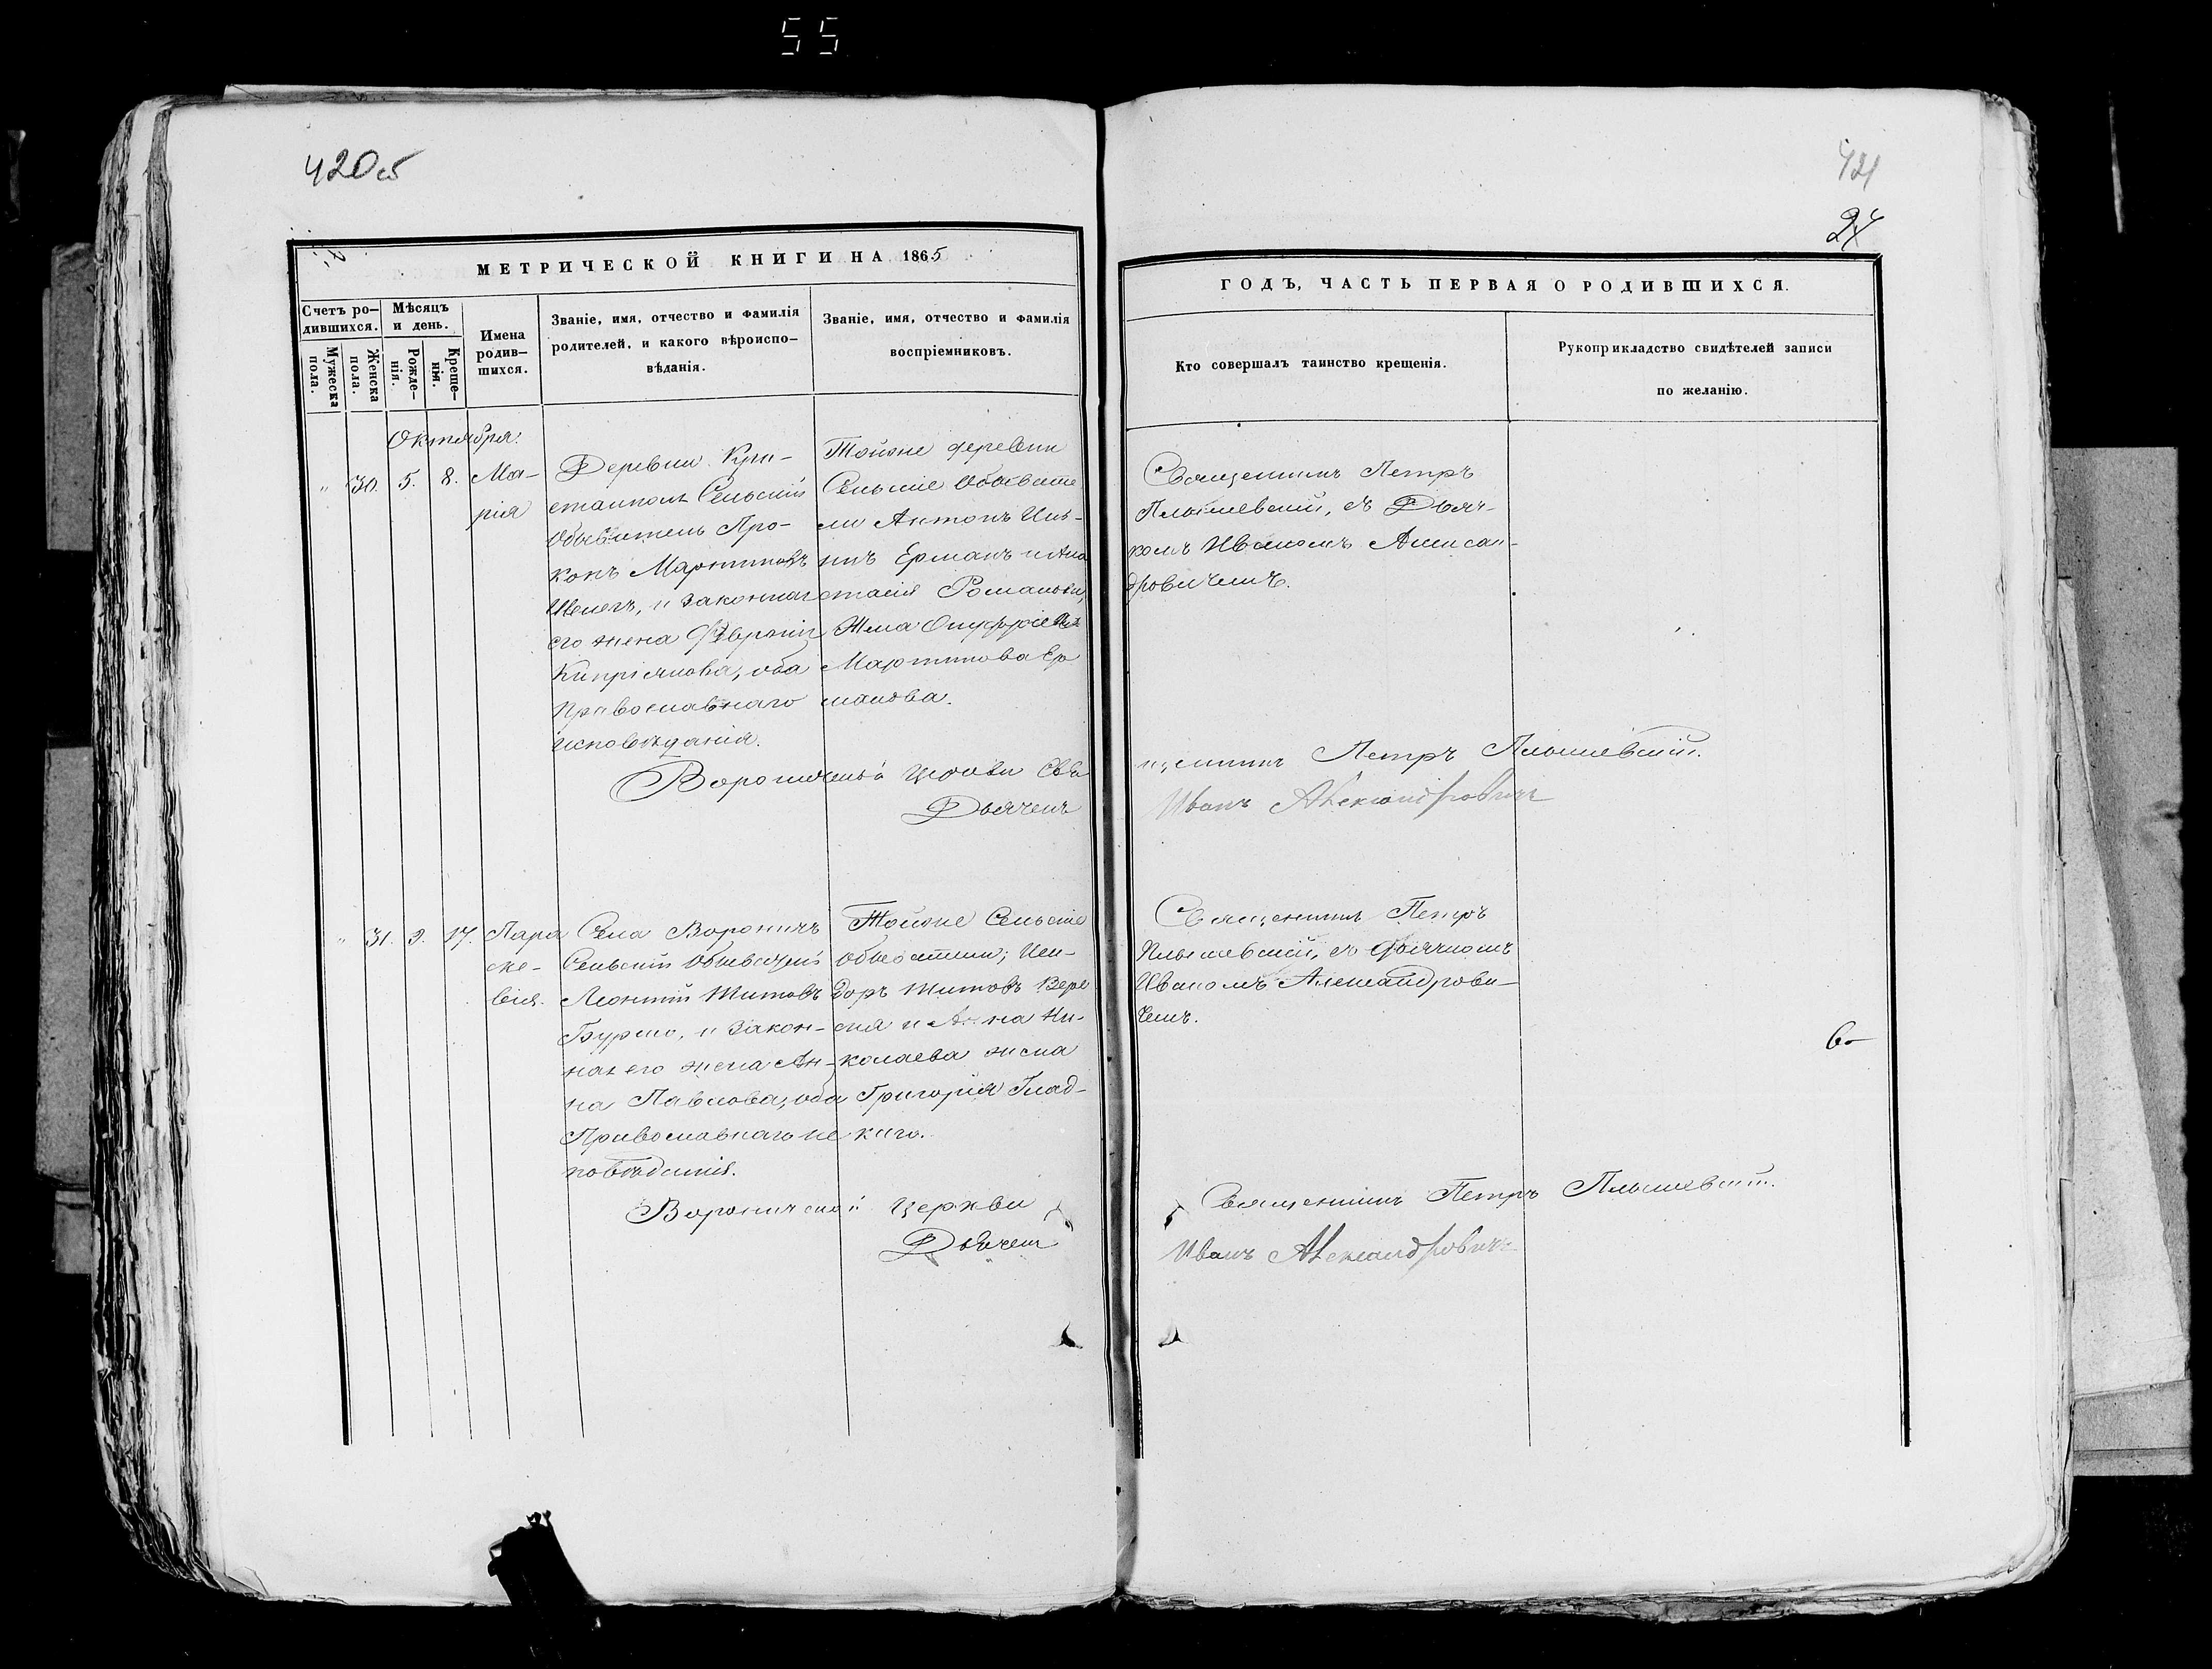 55
420об
421
24
МЕТРИЧЕСКОЙ КНИГИ НА 1865
ГОДЪ, ЧАСТЬ ПЕРВАЯ О РОДИВШИХСЯ.
Счетъ ро-
дившихся.
Мужеска
пола.
Женска
пола.
Мѣсяцъ
и день.
Рожде-
нія.
Креще-
нія.
Имена
родив-
шихся.
Званіе, имя, отчество и фамилія
родителей, и какого вѣроиспо-
вѣданія.
Званіе, имя, отчество и фамилія
воспріемниковъ.
Кто совершалъ таинство крещенія.
Рукоприкладство свидѣтелей записи
по желанію.
Октября.
" 30. 5. 8. Ма-
рія
Деревни Кри-
Сельскій
Обыватель Про-
копъ Мартиновъ
и законная
его жена
Кипріянова, оба
Православнаго
исповѣданія.
Тойже деревни
Сельскіе Обывате
ли Антонъ
Ерманъ и Ана
стасія Романова,
Жена
Мартинова Ер
манова.
Священникъ Петръ
Плышевскій, съ Дьяч-
комъ Иваномъ Алексан-
дровичемъ.
Вороничской церкви Свя
щенникъ Петръ Плышевскій.
Дьячекъ
Иванъ Александровичъ
" 31. 9. 17. Пара
ске-
вія.
Села Вороничъ
Сельскій Обыватель
Леонтій Титовъ
и закон-
ная его жена Ан-
на Павлова, оба
Православнаго ис
повѣданія.
Тойже Сельскіе
обыватели; Иси-
доръ Титовъ Вере
и Анна Ни-
колаева жена
Григорія Глад-
каго.
Священникъ Петръ
Плышевскій, съ дьячкомъ
Иваномъ Александрови-
чемъ.
Вороничской церкви
Священникъ Петръ Плышевскій.
Дьячекъ
Иванъ Александровичъ